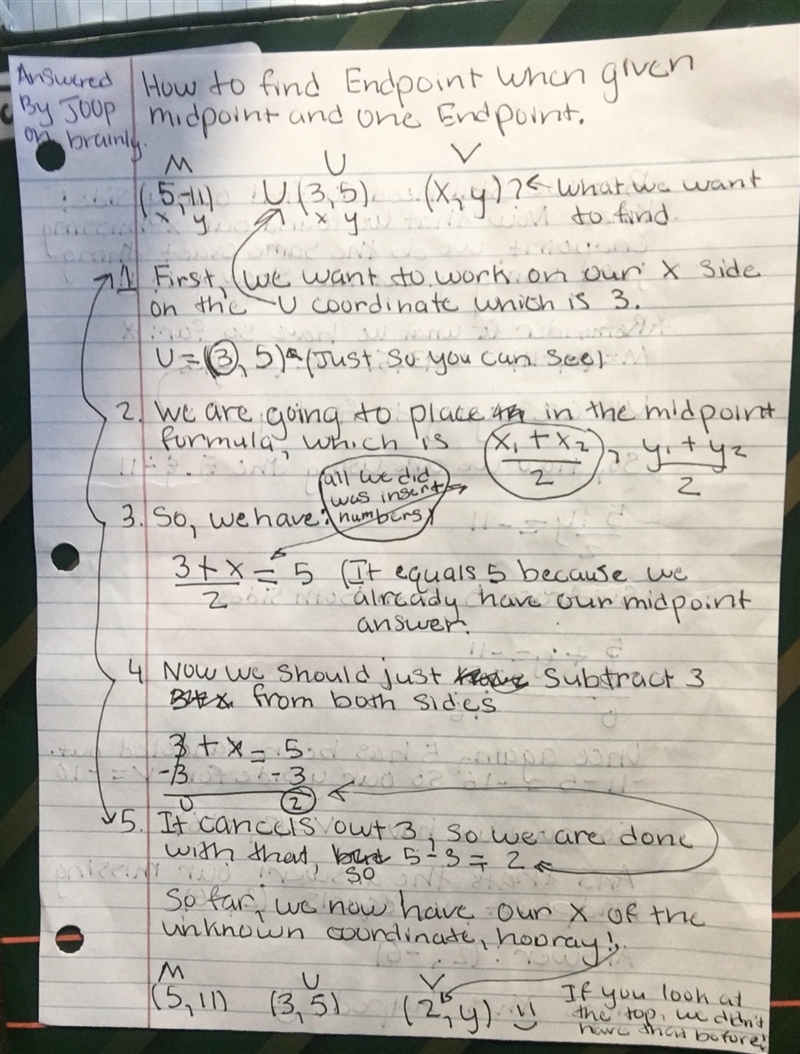 Answered
By JOUP
on brainly.
How to find Endpoint when given
midpoint and one Endpoint.
M U V
(5,-11) U (3,5) (x,y)? ← what we want
x y x y to find
1. First, we want to work on our x side
on the U coordinate which is 3.
U = (3, 5) ← (Just so you can see)
2. We are going to place in the midpoint
formula, which is x₁ + x₂ / 2 , y₁ + y₂ / 2
(all we did
was insert
numbers)
3. So, we have:
3 + x / 2 = 5 (It equals 5 because we
already have our midpoint
answer.
4 Now we should just subtract 3
from both sides
3 + x = 5
-3 -3
0 2
5. It cancels out 3, so we are done
with that, so 5-3 = 2
So far, we now have our x of the
unknown coordinate, hooray!
M U V
(5,11) (3,5) (2,y) If you look at
the top, we didn't
have that before!